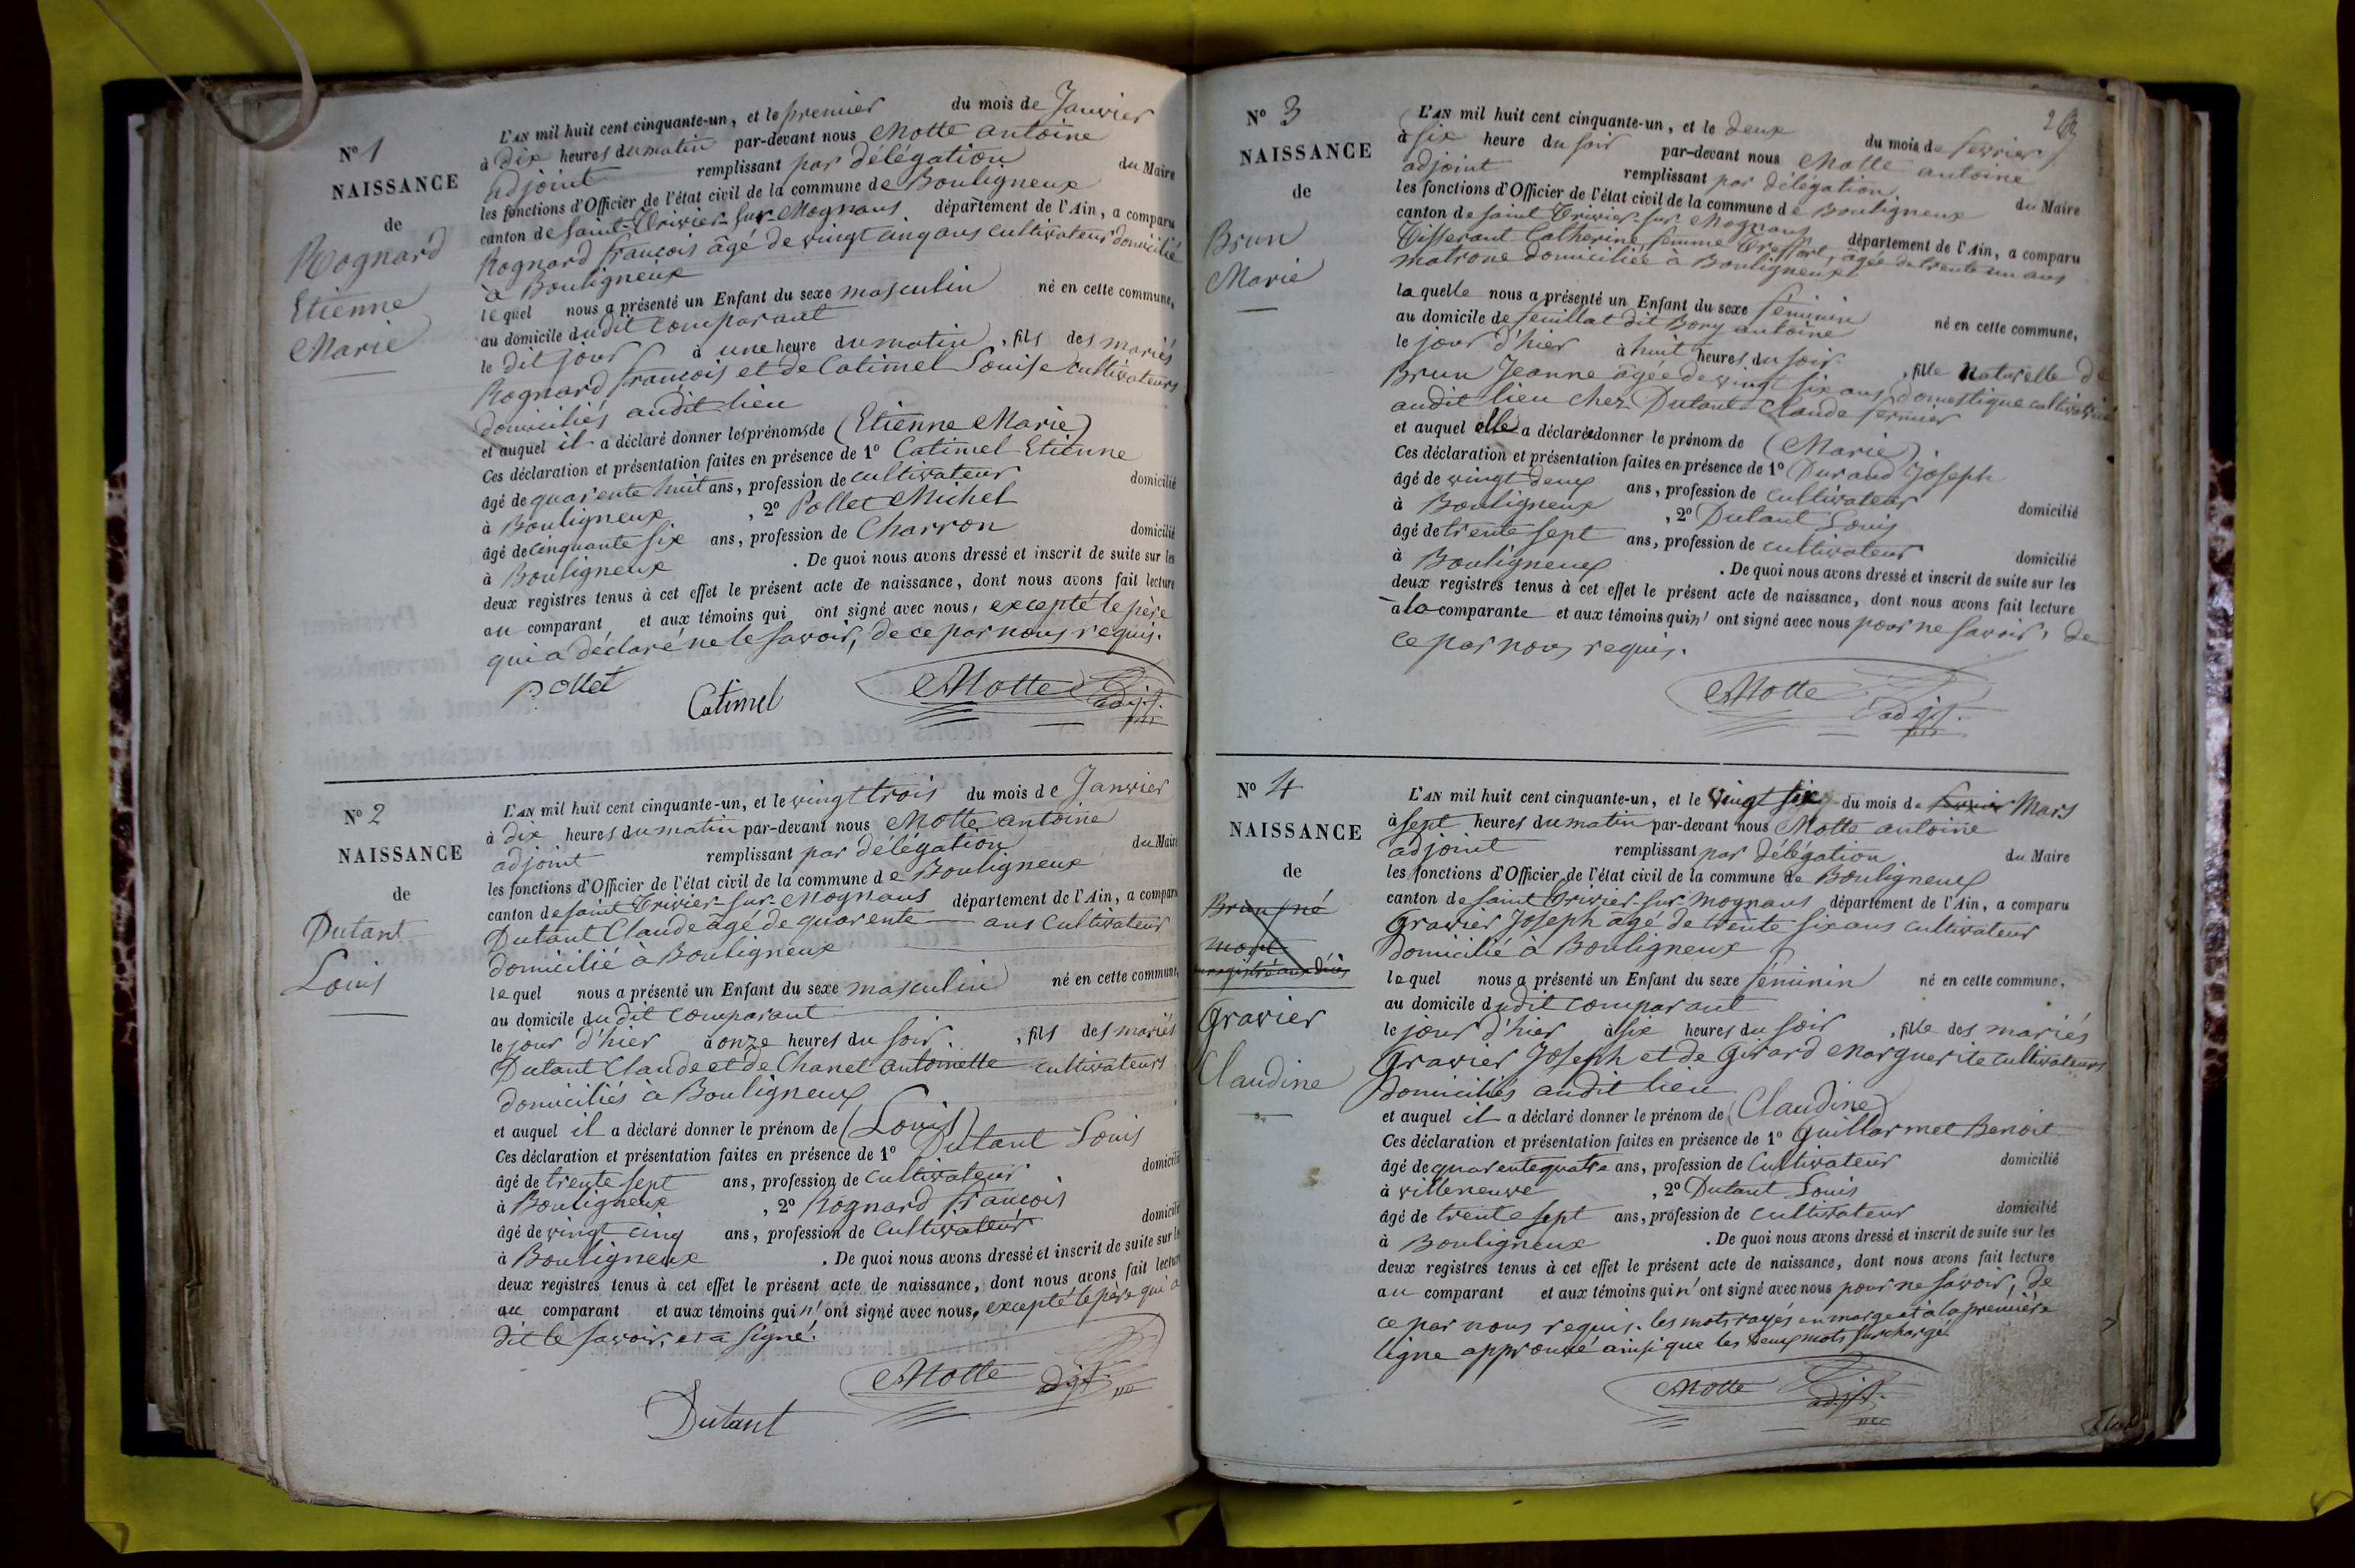 N° 1
NAISSANCE
de
Rognard
Etienne
Marie
L'AN mil huit cent cinquante-un, et le premier du mois de Janvier
à dix heures du matin par-devant nous Motte antoine
adjoint remplissant par délégation du Maire
les fonctions d'Officier de l'état civil de la commune de Bouligneux
canton de saint-Trivier-sur-Mognans département de l'Ain, a comparu
Rognard françois âgé de vingt cinq ans cultivateur domicilié
à Bouligneux
lequel nous a présenté un Enfant du sexe masculin né en cette commune,
au domicile dudit comparant
le dit jour à une heure du matin, fils des mariés
Rognard françois et de Catimel Louise cultivateurs
domiciliés audit lieu
et auquel il a déclaré donner les prénoms de (Etienne Marie)
Ces déclaration et présentation faites en présence de 1° Catimel Etienne
âgé de quarente huit ans, profession de cultivateur domicilié
à Bouligneux, 2° Pollet Michel
âgé de cinquante six ans, profession de Charron domicilié
à Bouligneux. De quoi nous avons dressé et inscrit de suite sur les
deux registres tenus à cet effet le présent acte de naissance, dont nous avons fait lecture
au comparant et aux témoins qui ont signé avec nous, excepté le père
qui a déclaré ne le savoir, de ce par nous requis.
pollet Catimel Motte adjt.
N° 2
NAISSANCE
de
Dutant
Louis
L'AN mil huit cent cinquante-un, et le vingt trois du mois de Janvier
à dix heures du matin par-devant nous Motte antoine
adjoint remplissant par délégation du Maire
les fonctions d'Officier de l'état civil de la commune de Bouligneux
canton de saint Trivier-sur-Mognans département de l'Ain, a comparu
Dutant Claude âgé de quarente ans cultivateur
domicilié à Bouligneux
lequel nous a présenté un Enfant du sexe masculin né en cette commune,
au domicile dudit comparant
le jour d'hier à onze heures du soir, fils des mariés
Dutant Claude et de Chanel antoinette cultivateurs
domiciliés à Bouligneux
et auquel il a déclaré donner le prénom de (Louis)
Ces déclaration et présentation faites en présence de 1° Dutant Louis
âgé de trente sept ans, profession de cultivateur domicilié
à Bouligneux, 2° Rognard françois
âgé de vingt cinq ans, profession de cultivateur domicilié
à Bouligneux. De quoi nous avons dressé et inscrit de suite sur les
deux registres tenus à cet effet le présent acte de naissance, dont nous avons fait lecture
au comparant et aux témoins qui n'ont signé avec nous, excepté le père qui a
dit le savoir, et a signé.
Motte adjt.
Dutant
N° 3
NAISSANCE
de
Brun
Marie
L'AN mil huit cent cinquante-un, et le deux du mois de fevrier
à six heure du soir par-devant nous Motte antoine
adjoint remplissant par délégation du Maire
les fonctions d'Officier de l'état civil de la commune de Bouligneux
canton de saint Trivier-sur Mognans département de l'Ain, a comparu
Tisserant Catherine, femme Treffort, âgée de trente un ans
matrone domiciliée à Bouligneux
laquelle nous a présenté un Enfant du sexe féminin né en cette commune,
au domicile de feuillat dit Bory antoine
le jour d'hier à huit heures du soir, fille Naturelle de
Brun Jeanne âgée de vingt six ans, domestique cultivatrice
audit lieu chez Dutant Claude fermier
et auquel elle a déclarée donner le prénom de (Marie)
Ces déclaration et présentation faites en présence de 1° Durand Joseph
âgé de vingt deux ans, profession de cultivateur domicilié
à Bouligneux, 2° Dutant Louis
âgé de trente sept ans, profession de cultivateur domicilié
à Bouligneux. De quoi nous avons dressé et inscrit de suite sur les
deux registres tenus à cet effet le présent acte de naissance, dont nous avons fait lecture
à la comparante et aux témoins qui n'ont signé avec nous pour ne savoir, de
ce par nous requis.
Motte adjt.
N° 4
NAISSANCE
de
Brun né
mort
enregistré aux décès
Gravier
Claudine
L'AN mil huit cent cinquante-un, et le Vingt six du mois de fevrier Mars
à sept heures du matin par-devant nous Motte antoine
adjoint remplissant par délégation du Maire
les fonctions d'Officier de l'état civil de la commune de Bouligneux
canton de saint Trivier-sur-mognans département de l'Ain, a comparu
Gravier Joseph âgé de trente six ans cultivateur
domicilié à Bouligneux
lequel nous a présenté un Enfant du sexe féminin né en cette commune,
au domicile dudit comparant
le jour d'hier à six heures du soir, fille des mariés
Gravier Joseph et de Girard Marguerite cultivateurs
Domiciliés audit lieu
et auquel il a déclaré donner le prénom de (Claudine)
Ces déclaration et présentation faites en présence de 1° Guillarmet Benoit
âgé de quarente quatre ans, profession de Cultivateur domicilié
à villeneuve, 2° Dutant Louis
âgé de trente sept ans, profession de cultivateur domicilié
à Bouligneux. De quoi nous avons dressé et inscrit de suite sur les
deux registres tenus à cet effet le présent acte de naissance, dont nous avons fait lecture
au comparant et aux témoins qui n'ont signé avec nous pour ne savoir, de
ce par nous requis. les mots rayés en marge et à la première
ligne approuvé ainsi que les deux mots surchargé.
Motte adjt.